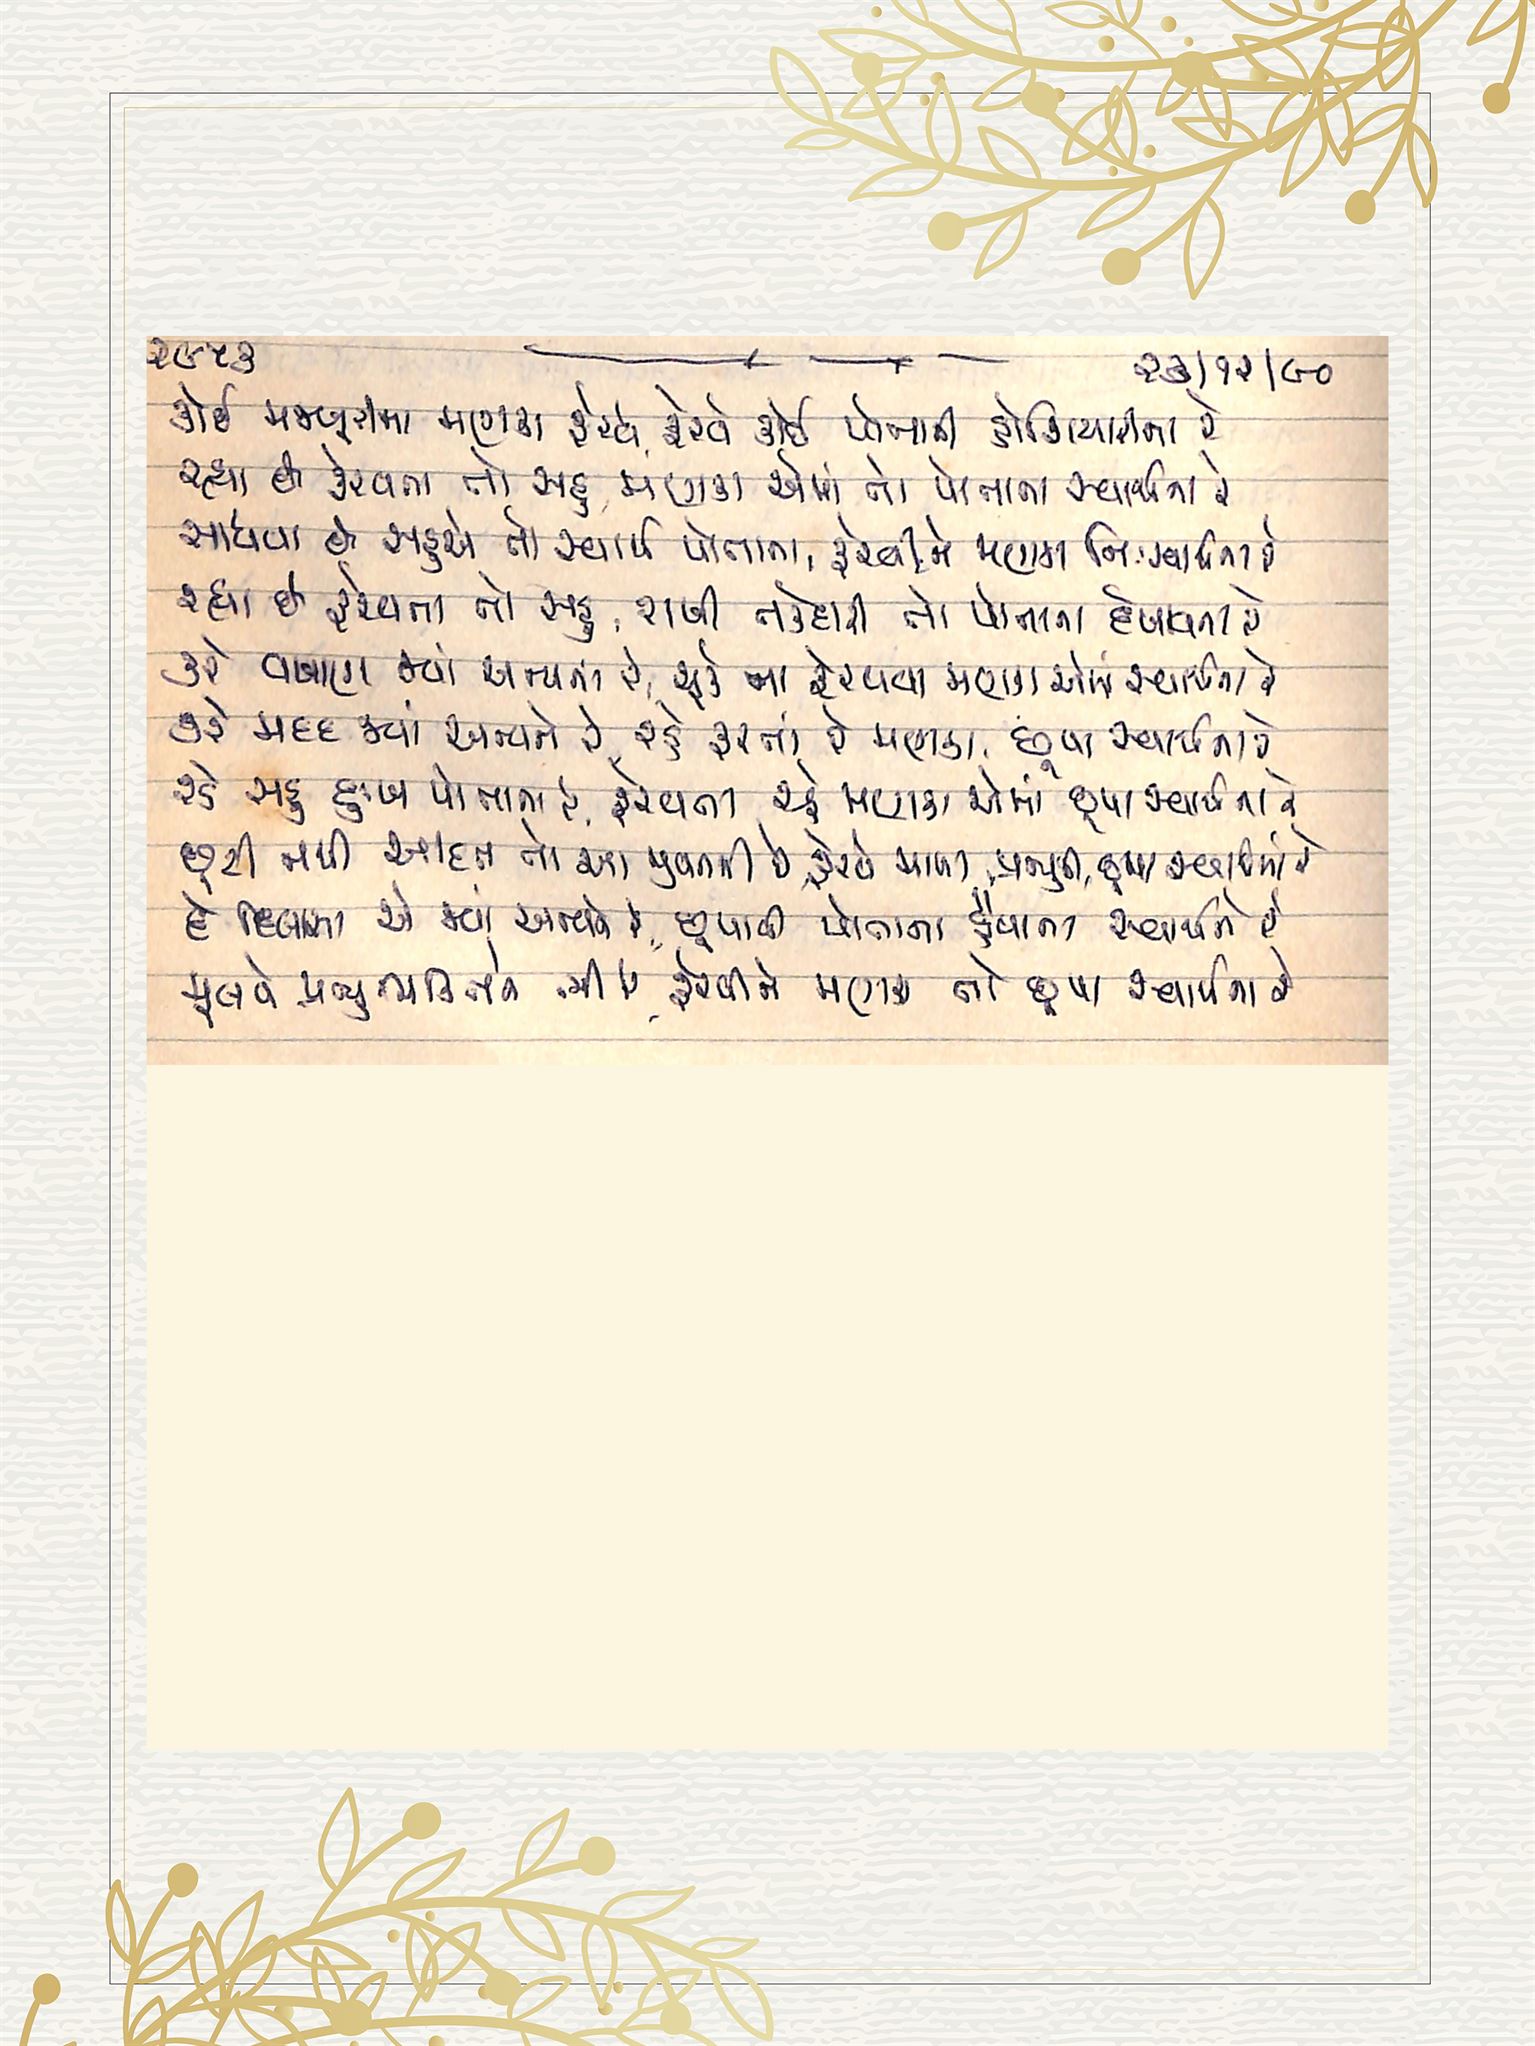 ૨૯૫૩
૨૩/૧૨/૯૦
કોઈ મજબૂરીના મણકા ફેરવે, ફેરવે કોઈ પોતાની હોશિયારીના રે
રહ્યા છે ફેરવતા તો સહુ મણકા એમાં તો પોતાના સ્વાર્થના રે
સાધવા છે સહુએ તો સ્વાર્થ પોતાના, ફેરવીને મણકા નિઃસ્વાર્થના રે
રહ્યા છે ફેરવતા તો સહુ, રાખી તકેદારી તો પોતાના દેખાવની રે
કરે વખાણ જ્યાં અન્યના રે, ચૂકે ના ફેરવવા મણકા એમાં સ્વાર્થના રે
કરે મદદ જ્યાં અન્યને રે, રહે ફરતાં રે મણકા, છૂપા સ્વાર્થના રે
રડે સહુ દુઃખ પોતાના રે, ફેરવતા રહે મણકા એમાં છૂપા સ્વાર્થના રે
છૂટી નથી આદત તો આ રે, ફેરવે માળા, પ્રભુની, છૂપા સ્વાર્થમાં રે
દે દિલાસા એ જ્યાં અન્યને રે, છૂપાવી પોતાના હૈયાના સ્વાર્થને રે
ભૂલવે પ્રભુ રે, ફેરવીને મણકા તો છૂપા સ્વાર્થના રે